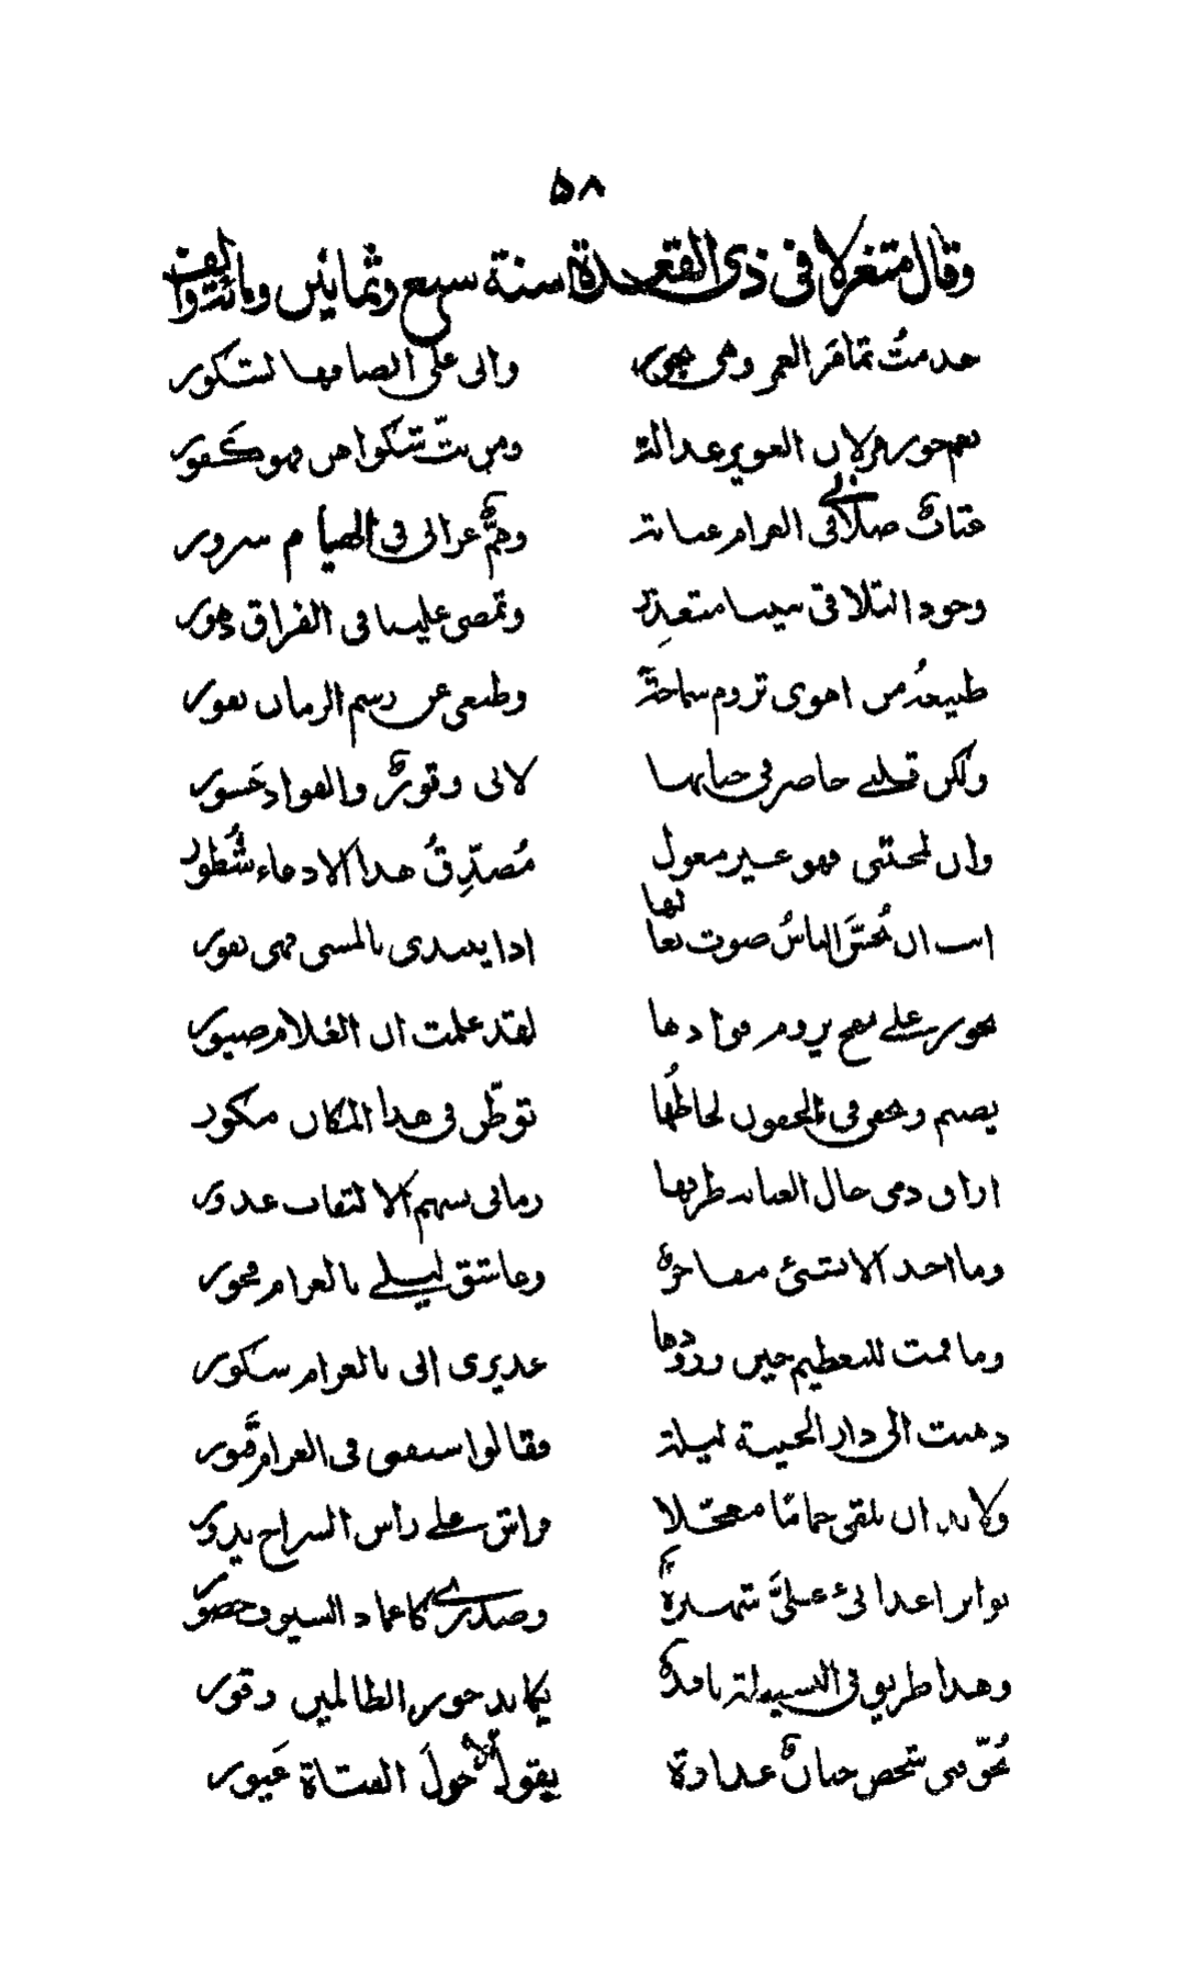 ٥٨
وقال متغزلا فى ذى القعدة سنة سبع وثمانين ومائتين والف
خدمتُ تمام العمر وهى وانى على انصافها لشكور
نعم جور هزلان الغوير عدالة ومن بتّ شكواهن فهو كفور
عتاب فى الغرام عناية وهمّ عرانى فى الهيام سرور
وجود التلاقى بيننا متعذر وتمضى علينا فى الفراق دهور
طبيعة من اهوى تروم سماحة وطبعى عن رسم الزمان نفور
ولكن قلبى حاضر فى جنابها لانى وقور والفواد جسور
وان لمحتنى فهو غير معول مُصدّقُ هذا الادعاء شُطور
ان الناسُ صوت اذا بالمسى فهى نفور
على يروم فوادها لقد علمت ان الغلام صبور
يصيم وهو فى الجفون لحاظُها توطّن فى هذا المكان
اراق دمى حال طربها رمانى بسهم الالتفات غدور
وما احد الا بشئ مفاخرة وعاشق ليلى بالغرام فخور
وما قمت للتعظيم حين ورودها عذيرى انى بالغرام سكور
ذهبت الى دار الحبيبة ليلة فقالوا فى الغرام
ولابد ان يلقى حمامًا معجّلا فراش على راس السراج يدور
اعدائى علىّ شهيرة وصدرى كاغماد السيوف
وهذا طريق فى البسيطة نافذ يكابد جور الظالمين وقور
شخص جبان عداوة يقول حول الفتاة غيور